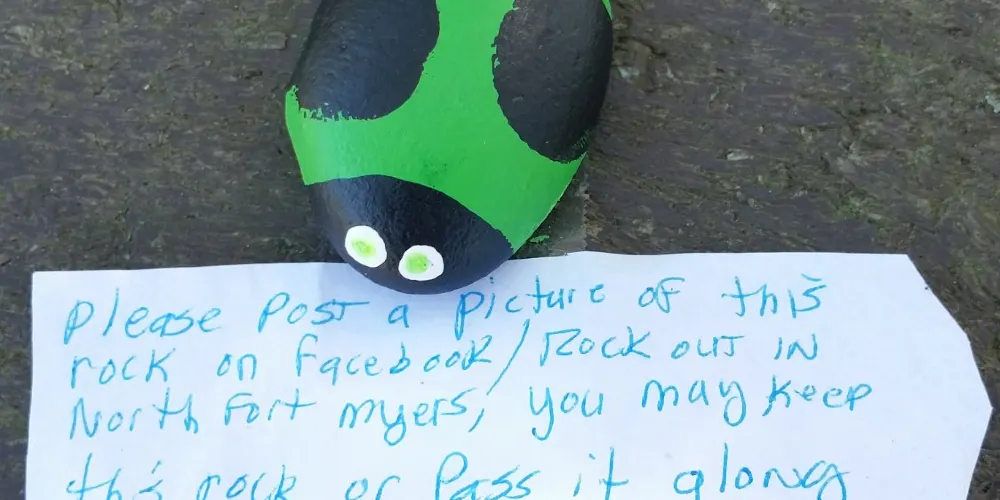 Please Post a picture of this
rock on facebook/Rock out IN
North Fort myers, you may keep
this rock or Pass it along